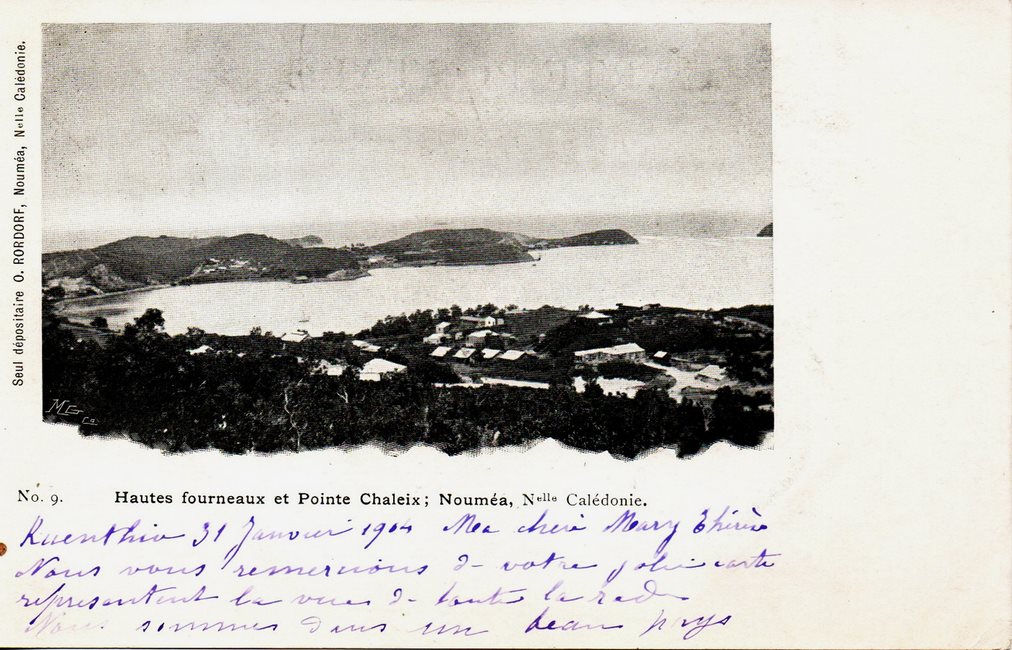 Seul dépositaire O. RORDORF, Nouméa, Nelle Calédonie.
No. 9. Hautes fourneaux et Pointe Chaleix; Nouméa, Nelle Calédonie.
31 Janvier 1904 Ma chère Mary Thérèse
Nous vous remercions de votre jolie carte
representent la vue de toute la rade
Nous sommes dans un beau pays